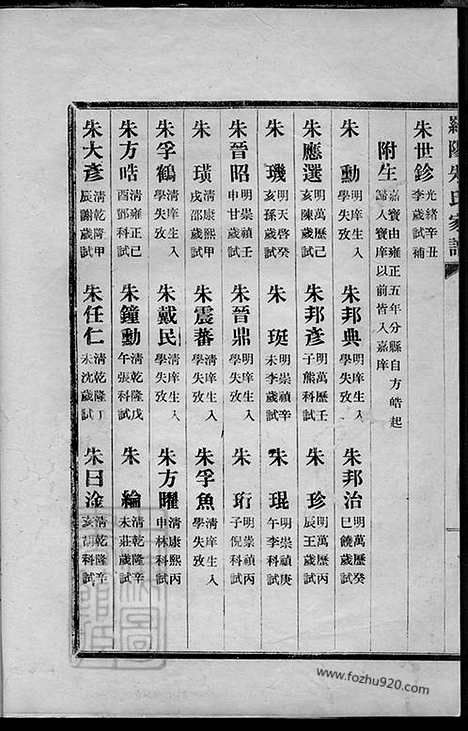 羅陽朱氏家譜
朱世鉁 光緒辛丑李歲試補
附生 嘉寶由雍正五年分縣自方皓起歸入寶庠以前皆入嘉庠
朱勳 明庠生入學失攷 朱邦典 明庠生入學失攷 朱邦治 明萬歷癸巳饒歲試
朱應選 明萬歷己亥陳歲試 朱邦彥 明萬歷壬子熊科試 朱珍 明萬歷丙辰王歲試
朱璣 明天啓癸亥孫歲試 朱珽 明崇禎辛未李歲試 朱琨 明崇禎庚午李科試
朱晉昭 明崇禎壬申甘歲試 朱晉鼎 明庠生入學失攷 朱珩 明崇禎丙子倪科試
朱璜 清康熙甲戌邵歲試 朱震蕃 清庠生入學失攷 朱孚魚 清庠生入學失攷
朱孚鶴 清庠生入學失攷 朱戴民 清庠生入學失攷 朱方曜 清康熙丙申林科試
朱方皓 清雍正己酉鄧科試 朱鐘勳 清乾隆戊午張科試 朱綸 清乾隆辛未莊歲試
朱大彥 清乾隆甲辰謝歲試 朱任仁 清乾隆丁未沈歲試 朱曰淦 清乾隆辛亥胡科試
www.fozhu920.com